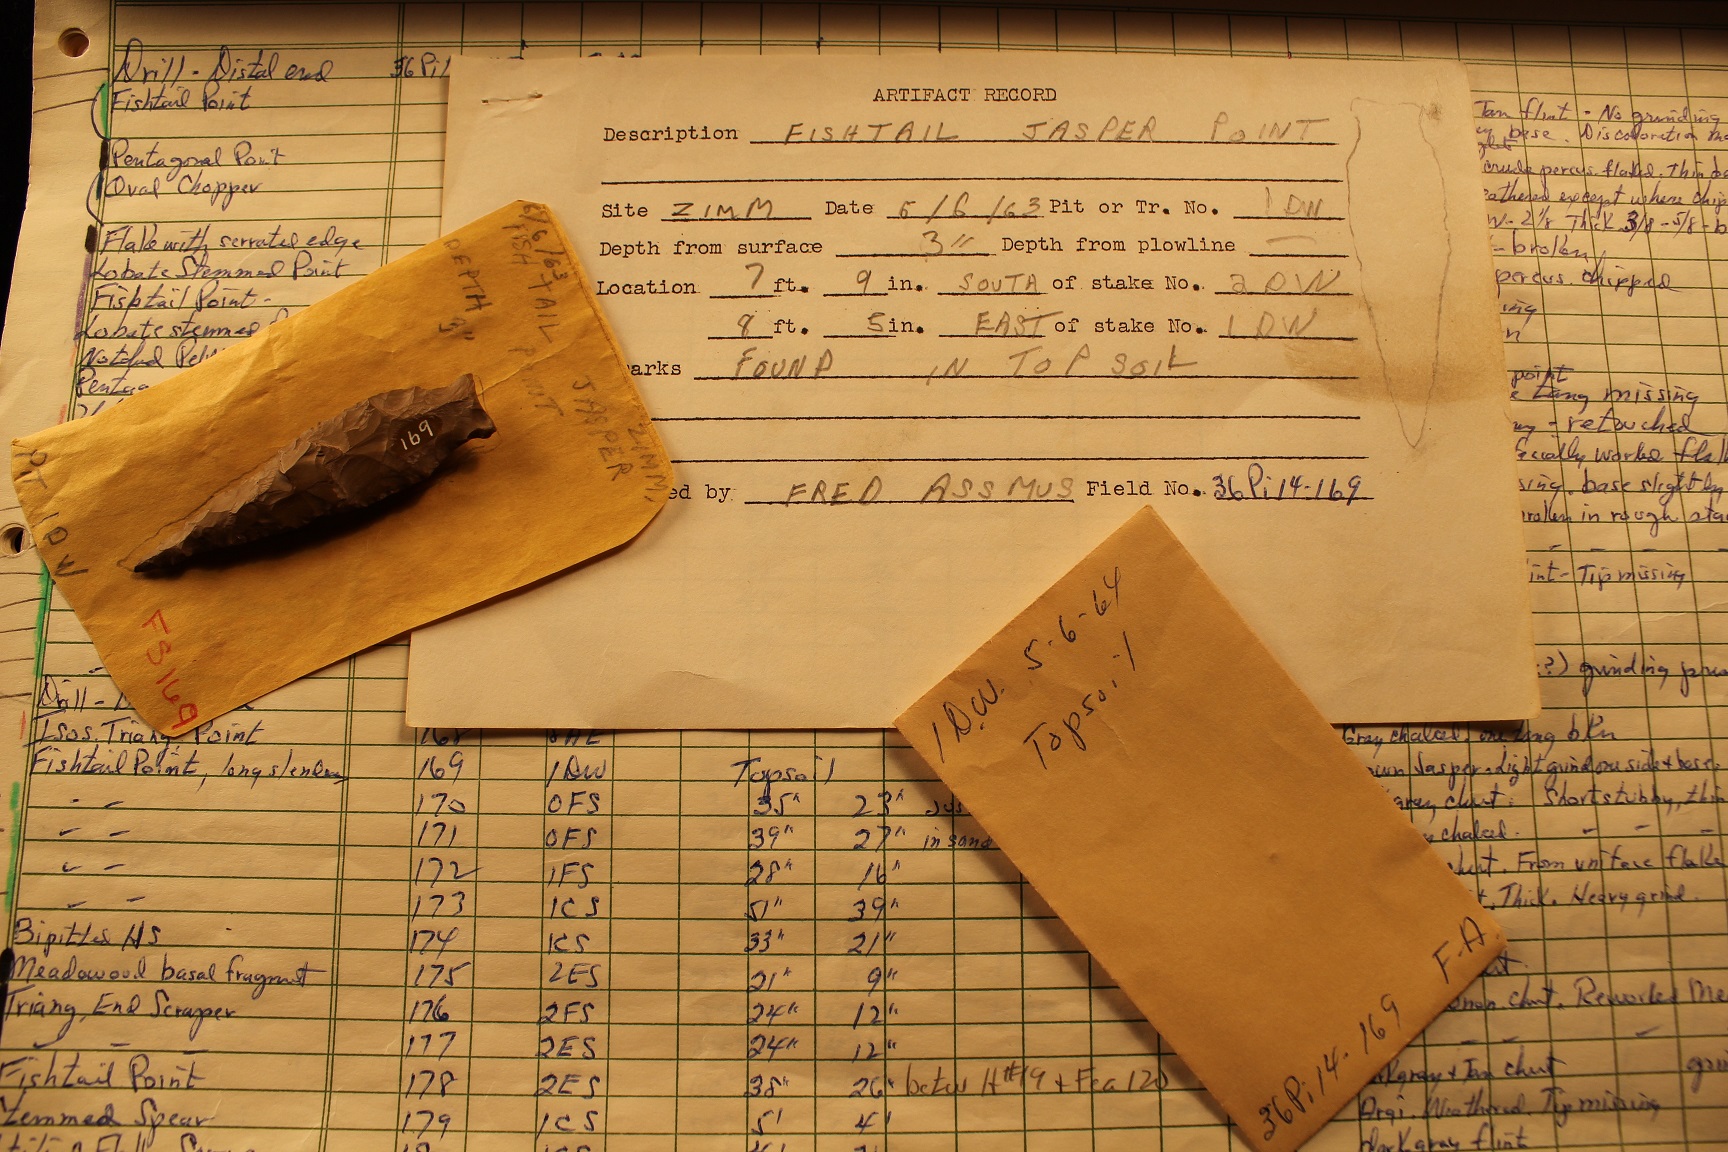 Drill - Distal end 36Pi1
Fishtail Point
Pentagonal Point
Oval Chopper
Flake with serrated edge
Lobate Stemmed Point
Fishtail Point -
Lobate stemmed
Notched
Pentag
ARTIFACT RECORD
Description FISHTAIL JASPER POINT
Site ZIMM Date 5/6/63 Pit or Tr. No. 1DW
Depth from surface 3" Depth from plowline —
Location 7 ft. 9 in. SOUTH of stake No. 2DW
8 ft. 5 in. EAST of stake No. 1DW
arks FOUND IN TOP SOIL
ed by FRED ASSMUS Field No. 36Pi14-169
Tan flint - No grinding
base. Discoloration
crude percus. flaked. Thin
eathered except where chip
W-2 1/8 Thick 3/8-5/8-b
- broken
percus. chipped
ing
n
point
e tang missing
- retouched
ecially worked fl
sing. base slightly
broken in rough sta
int - Tip missing
?) grinding
6/6/63
FISH TAIL POINT
DEPTH 3"
JASPER
ZIMM,
PT 1DW
169
FS169
1DW. 5-6-64
Topsoil
F.A.
36Pi14-169
Drill -
Isos. Triang. Point 168
Fishtail Point, long slender 169 1DW Topsoil
Gray chalced. one tang bkn
own Jasper. Light grind one side & base.
" " 170 0FS 35" 23"
gray chert. Short stubby, thin
" " 171 0FS 39" 27" in sand
chalced. " " "
" " 172 1FS 28" 16"
chert. From uniface flake
" " 173 1CS 51" 39"
t. Thick. Heavy grind.
Bipitted HS 174 1CS 33" 21"
Meadowood basal fragment 175 2ES 21" 9"
Triang. End Scraper 176 2FS 24" 12"
chert. Reworked Me
" " 177 2ES 24" 12"
Fishtail Point 178 2ES 38" 26" betw H#19 & Fea 120
gray & Tan chert gri
Stemmed Spear 179 1CS 5' 4'
Argi. Weathered. Tip missing
dark gray flint